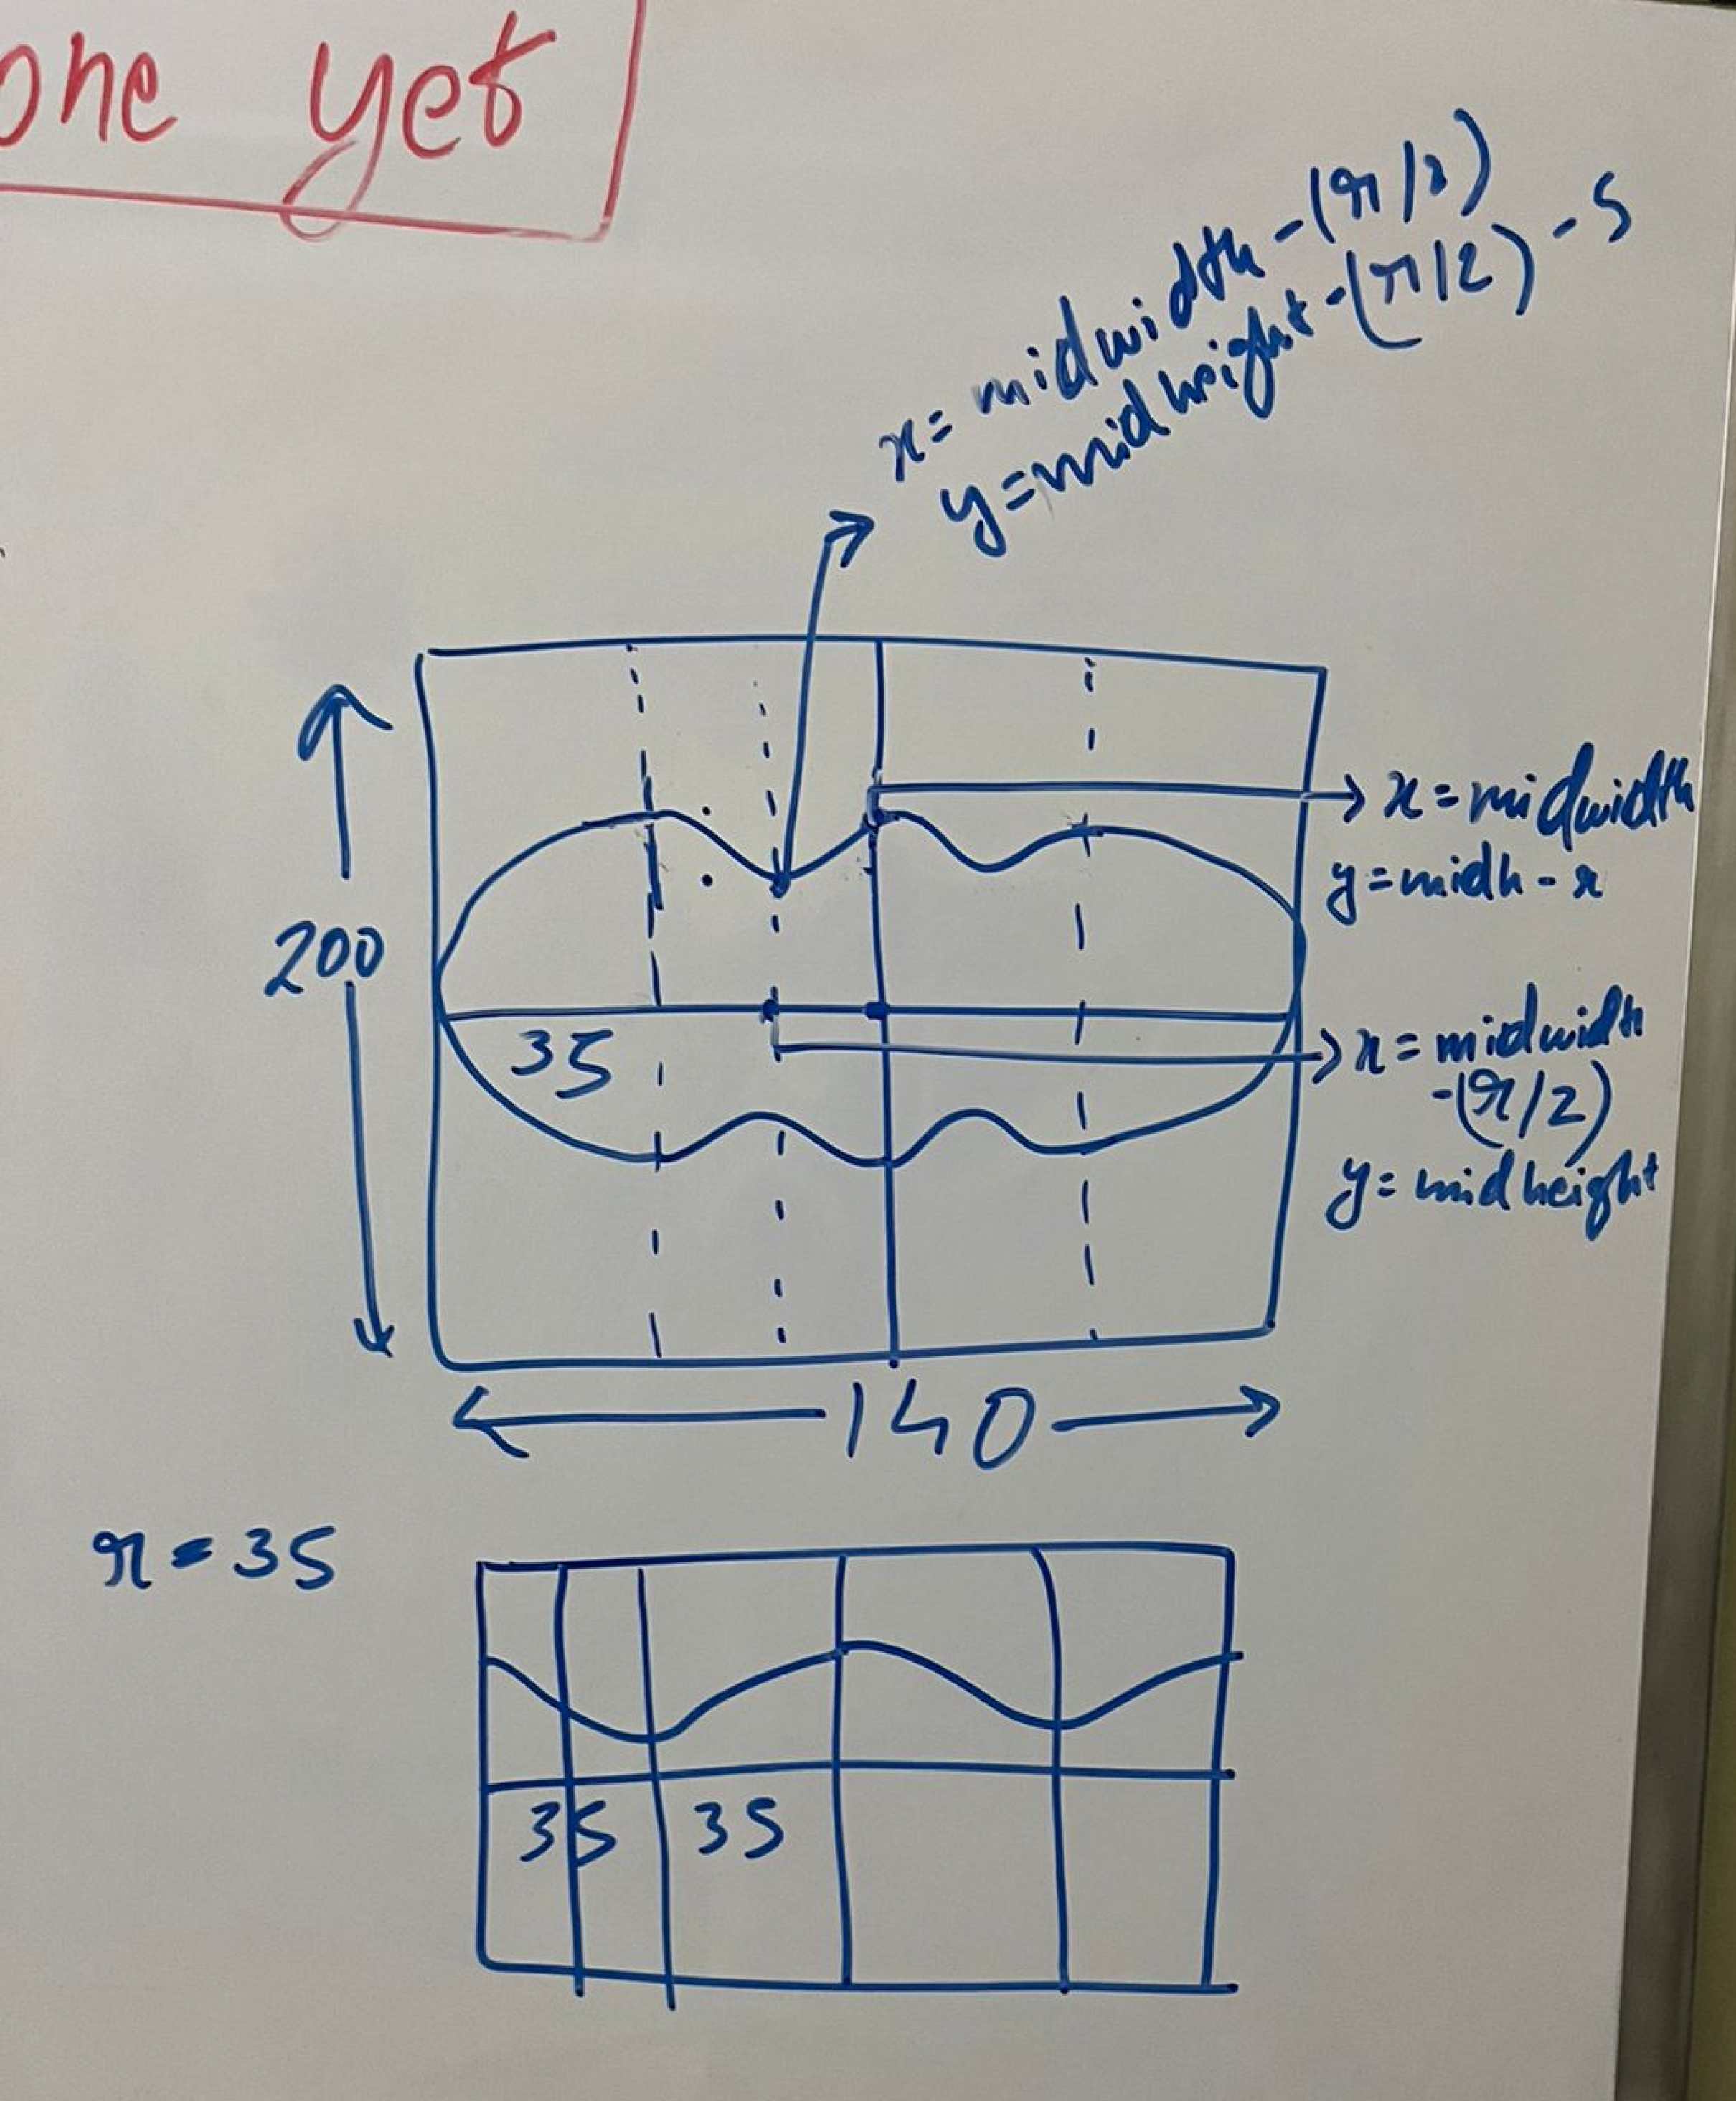 one yet
x = midwidth - (r/2)
y = midheight - (r/2) - 5
x = midwidth
y = midh - r
200
35
x = midwidth
-(r/2)
y = midheight
140
r = 35
35 35